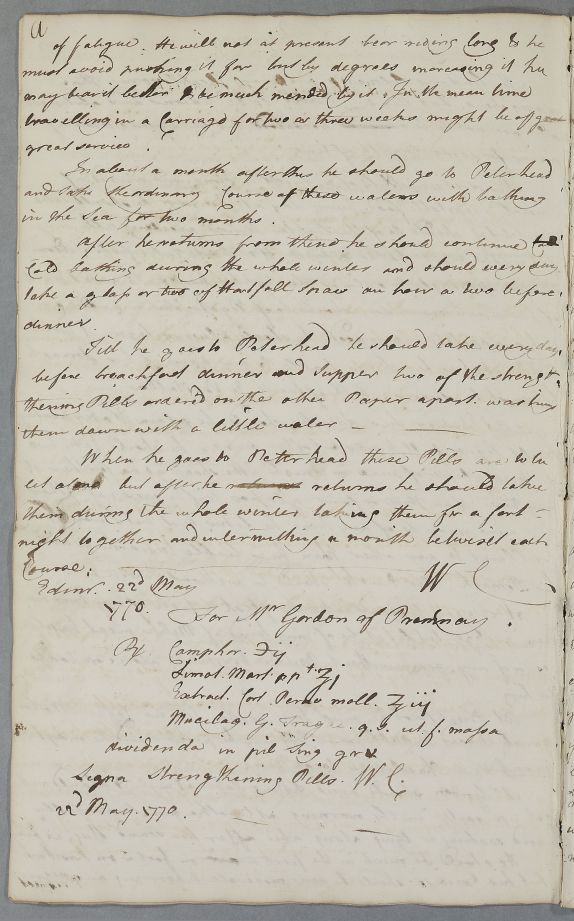 of fatigue. He will not at present bear riding long & he
must avoid pushing it far but by degrees increasing it he
may bear it better & be much mended by it. In the mean time
travelling in a Carriage for two or three weeks might be of
great service.
In about a month after this he should go to Peterhead
and take the ordinary Course of these waters with bathing
in the Sea for two Months.
After he returns from thence he should continue
Cold bathing during the whole winter and should every day
take a glass or two of Hartfall Spaw an hour or two before
dinner.
Till he goes to Peterhead he should take every day
before breackfast dinner and supper two of the strengt-
thening Pills ordered on the other Paper apart. washing
them down with a little water
When he goes to Peterhead these Pills are to be
let alone but after he returns he should take
them during the whole winter taking them for a fort-
night together and intermitting a month betwixt each
Course.
Edinr. 22d May W C
1770.
For Mr Gordon of Premnay.
℞ Camphor. ʒij
Limat. Mart. ppt. ℥j
Extract. Cort. Peruv. moll. ℥iij
Mucilag. G. Tragac. q. s. ut f. massa
dividenda in pil sing gr v
Signa Strengthening Pills. W. C.
22d May. 1770.